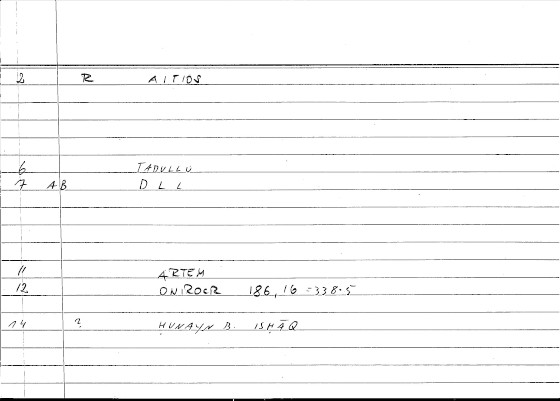 2 R AITIOS
6 TADULLU
7 AB DLL
11 ARTEM
12 ONIROCR 186,16 = 338.5
14 ? ḤUNAYN B. ISḤĀQ